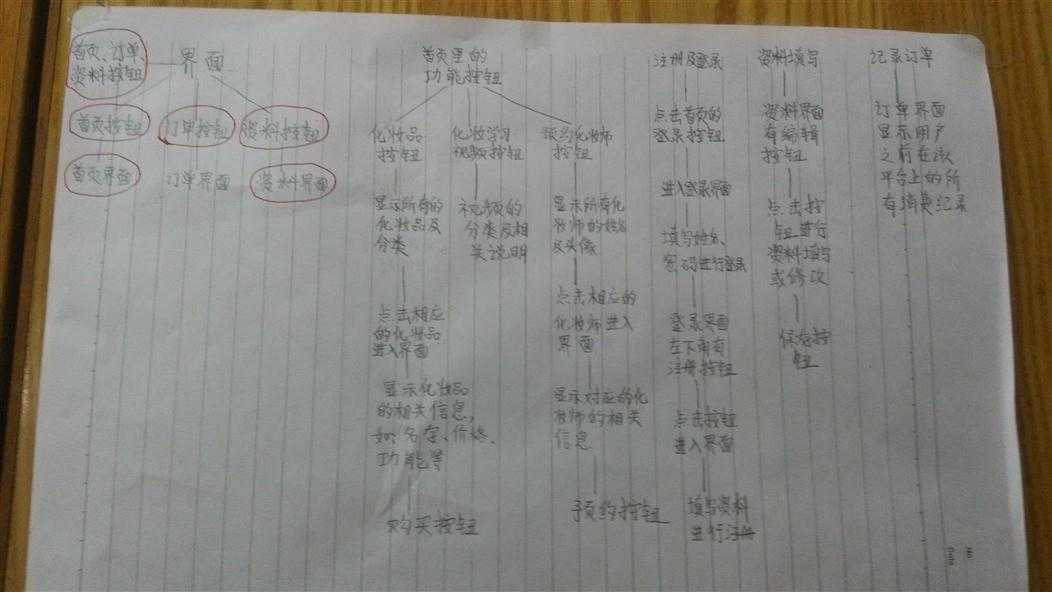 首页、订单、
资料按钮
界面
首页按钮
订单按钮
资料按钮
首页界面
订单界面
资料界面
首页里的
功能按钮
化妆品
按钮
显示所有的
化妆品及
分类
点击相应
的化妆品
进入界面
显示化妆品
的相关信息,
如名字、价格、
功能等
购买按钮
化妆学习
视频按钮
视频的
分类及相
关说明
预约化妆师
按钮
显示所有化
妆师的姓名
及头像
点击相应的
化妆师进入
界面
显示对应的化
妆师的相关
信息
预约按钮
注册及登录
点击首页的
登录按钮
进入登录界面
填写姓名、
密码进行登录
登录界面
左下角有
注册按钮
点击按钮
进入界面
填写资料
进行注册
资料填写
资料界面
有编辑
按钮
点击按
钮进行
资料填写
或修改
保存按
钮
纪录订单
订单界面
显示用户
之前在该
平台上的所
有消费纪录